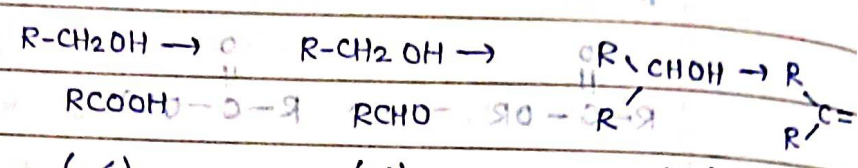 R-CH2OH → R-CH2 OH → R \ CHOH → R
RCOOH RCHO R / R / C=